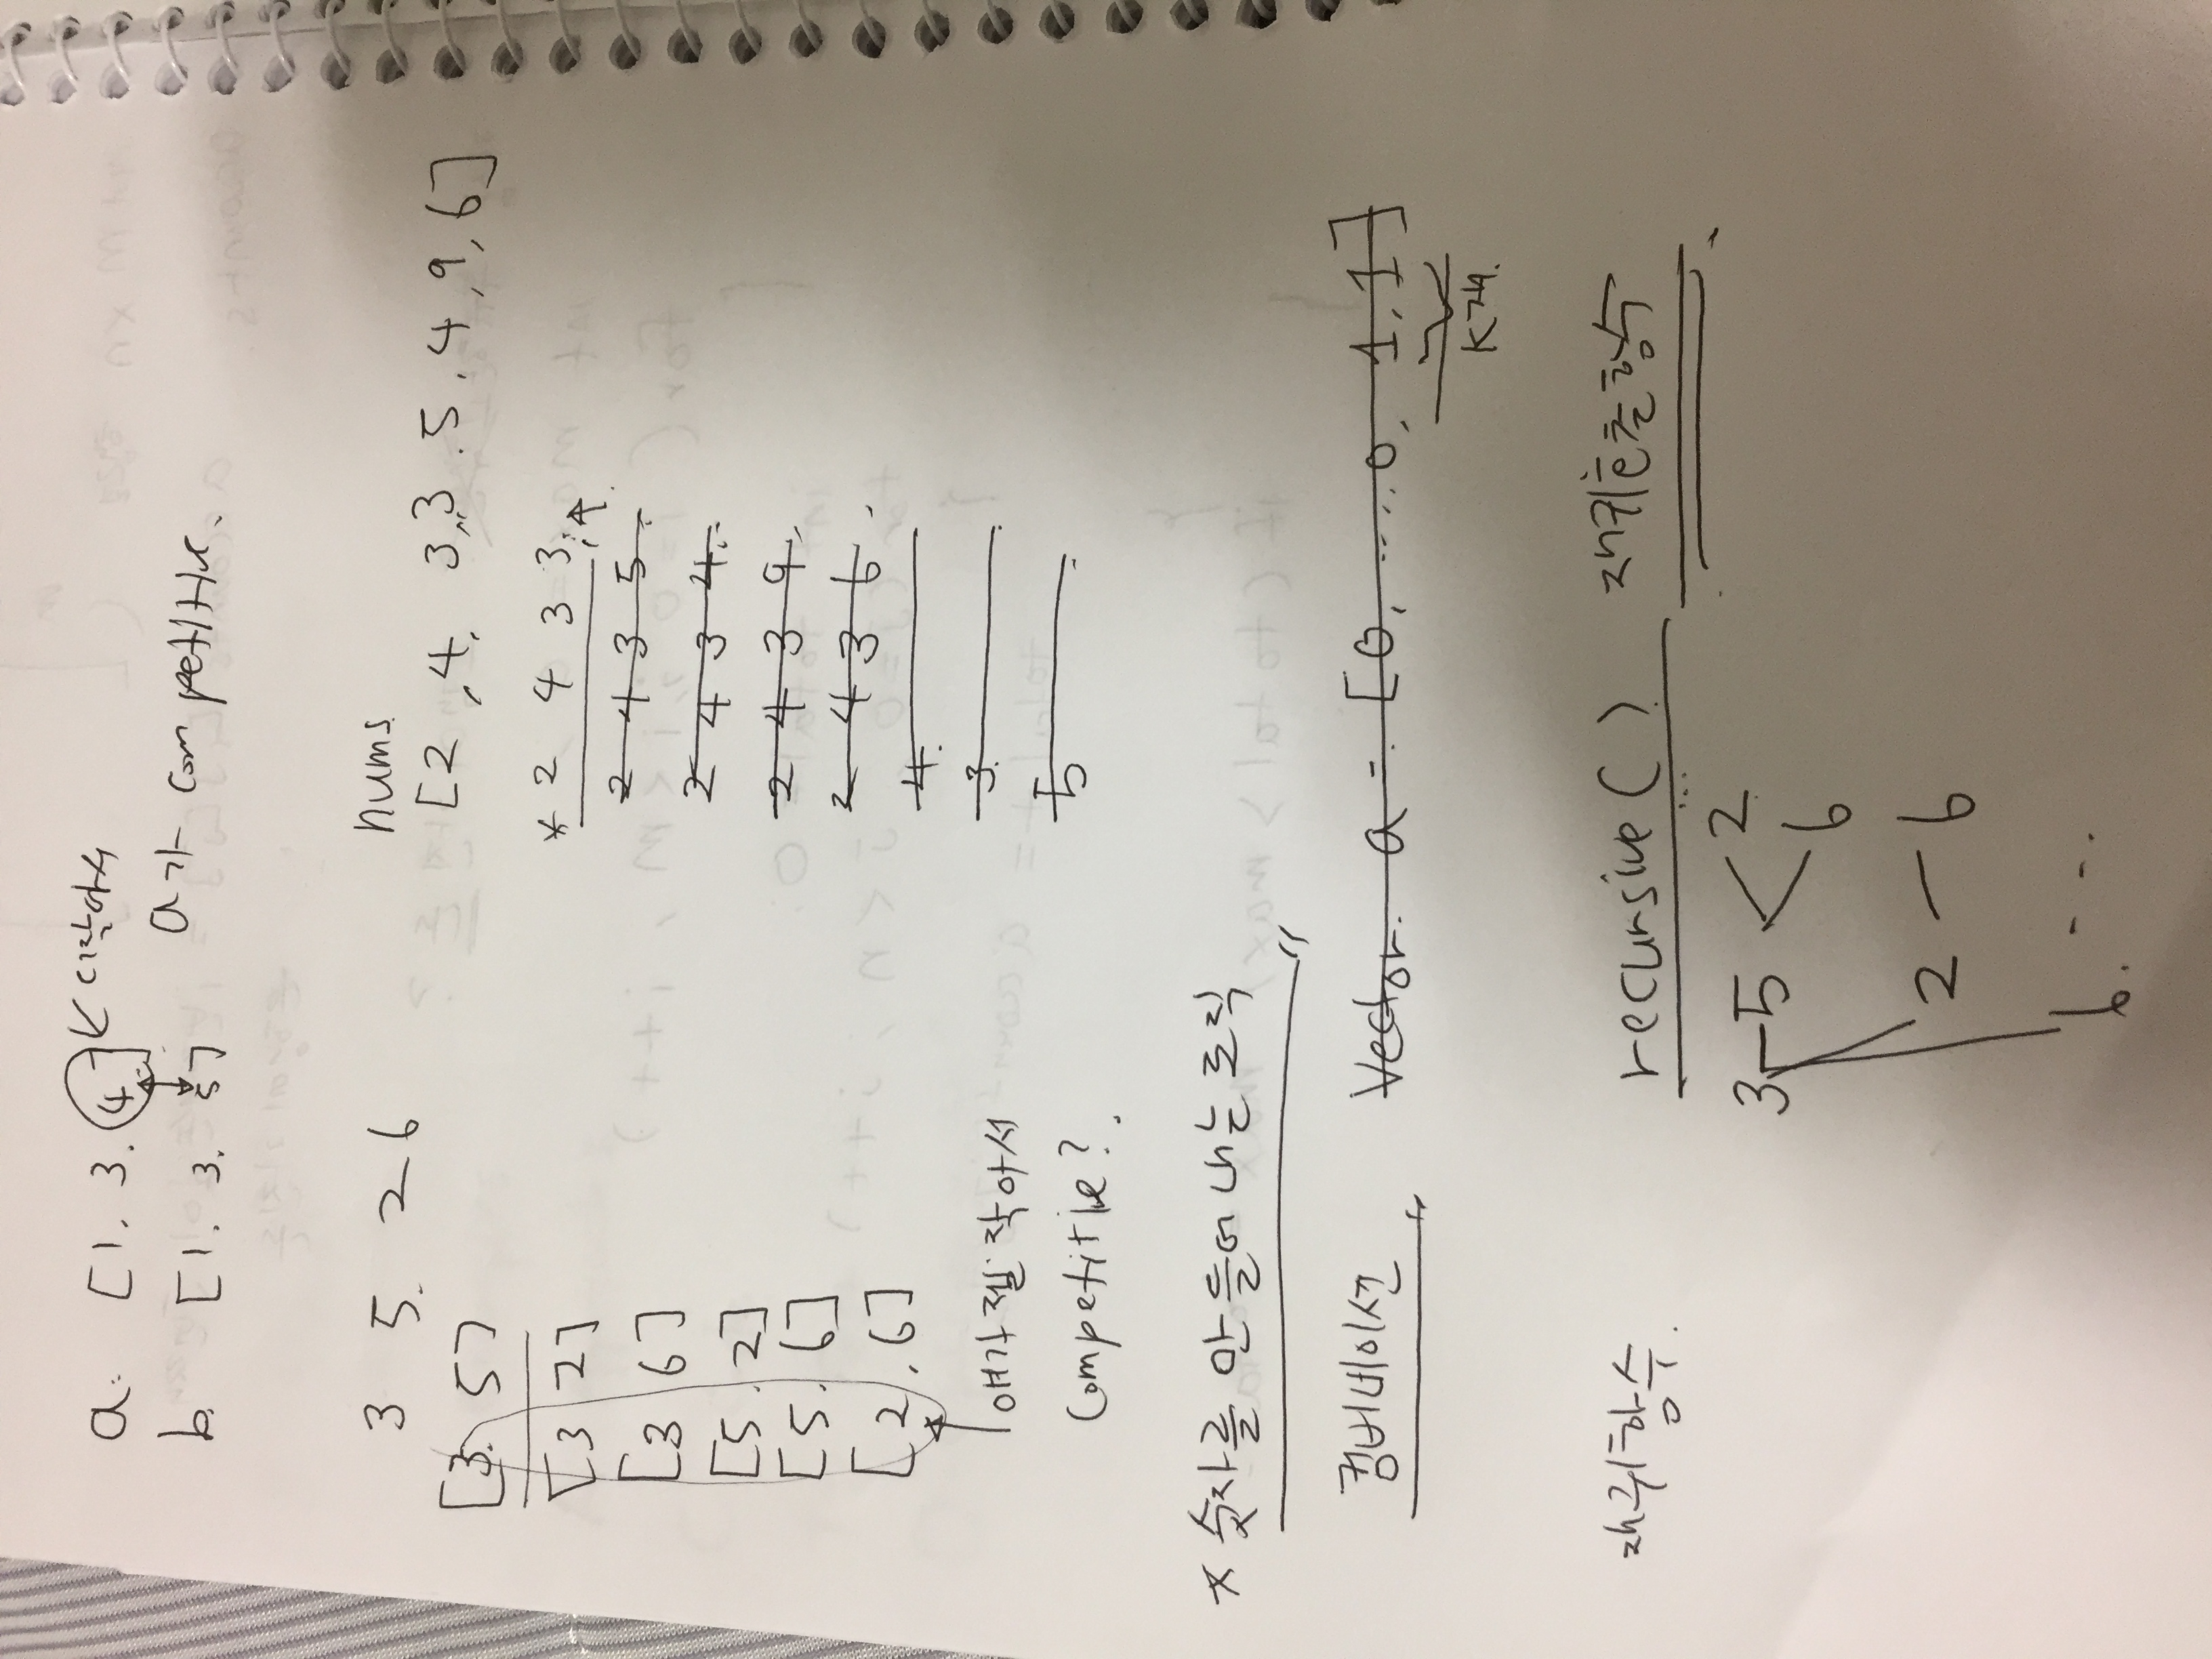 a. [1. 3. 4.] 더작아서
b. [1. 3. 5]
a가 competitive.
3 5. 2 6
[3. 5]
[3 2]
[3 6]
[5. 2]
[5. 6]
[2, 6]
얘가 젤 작아서
competitive?
nums
[2, 4, 3, 3, 5, 4, 9, 6]
* 2 4 3 3
2 4 3 5
2 4 3 4
2 4 3 9
2 4 3 6
4.
3.
5
* 숫자를 만들어 내는 로직
컴버네이션
Vector. a = [0, ..., 0, 1, 1]
K개.
재귀함수.
recursive( ) 재귀호출함수
3 5 2
6
2 6
6. ...